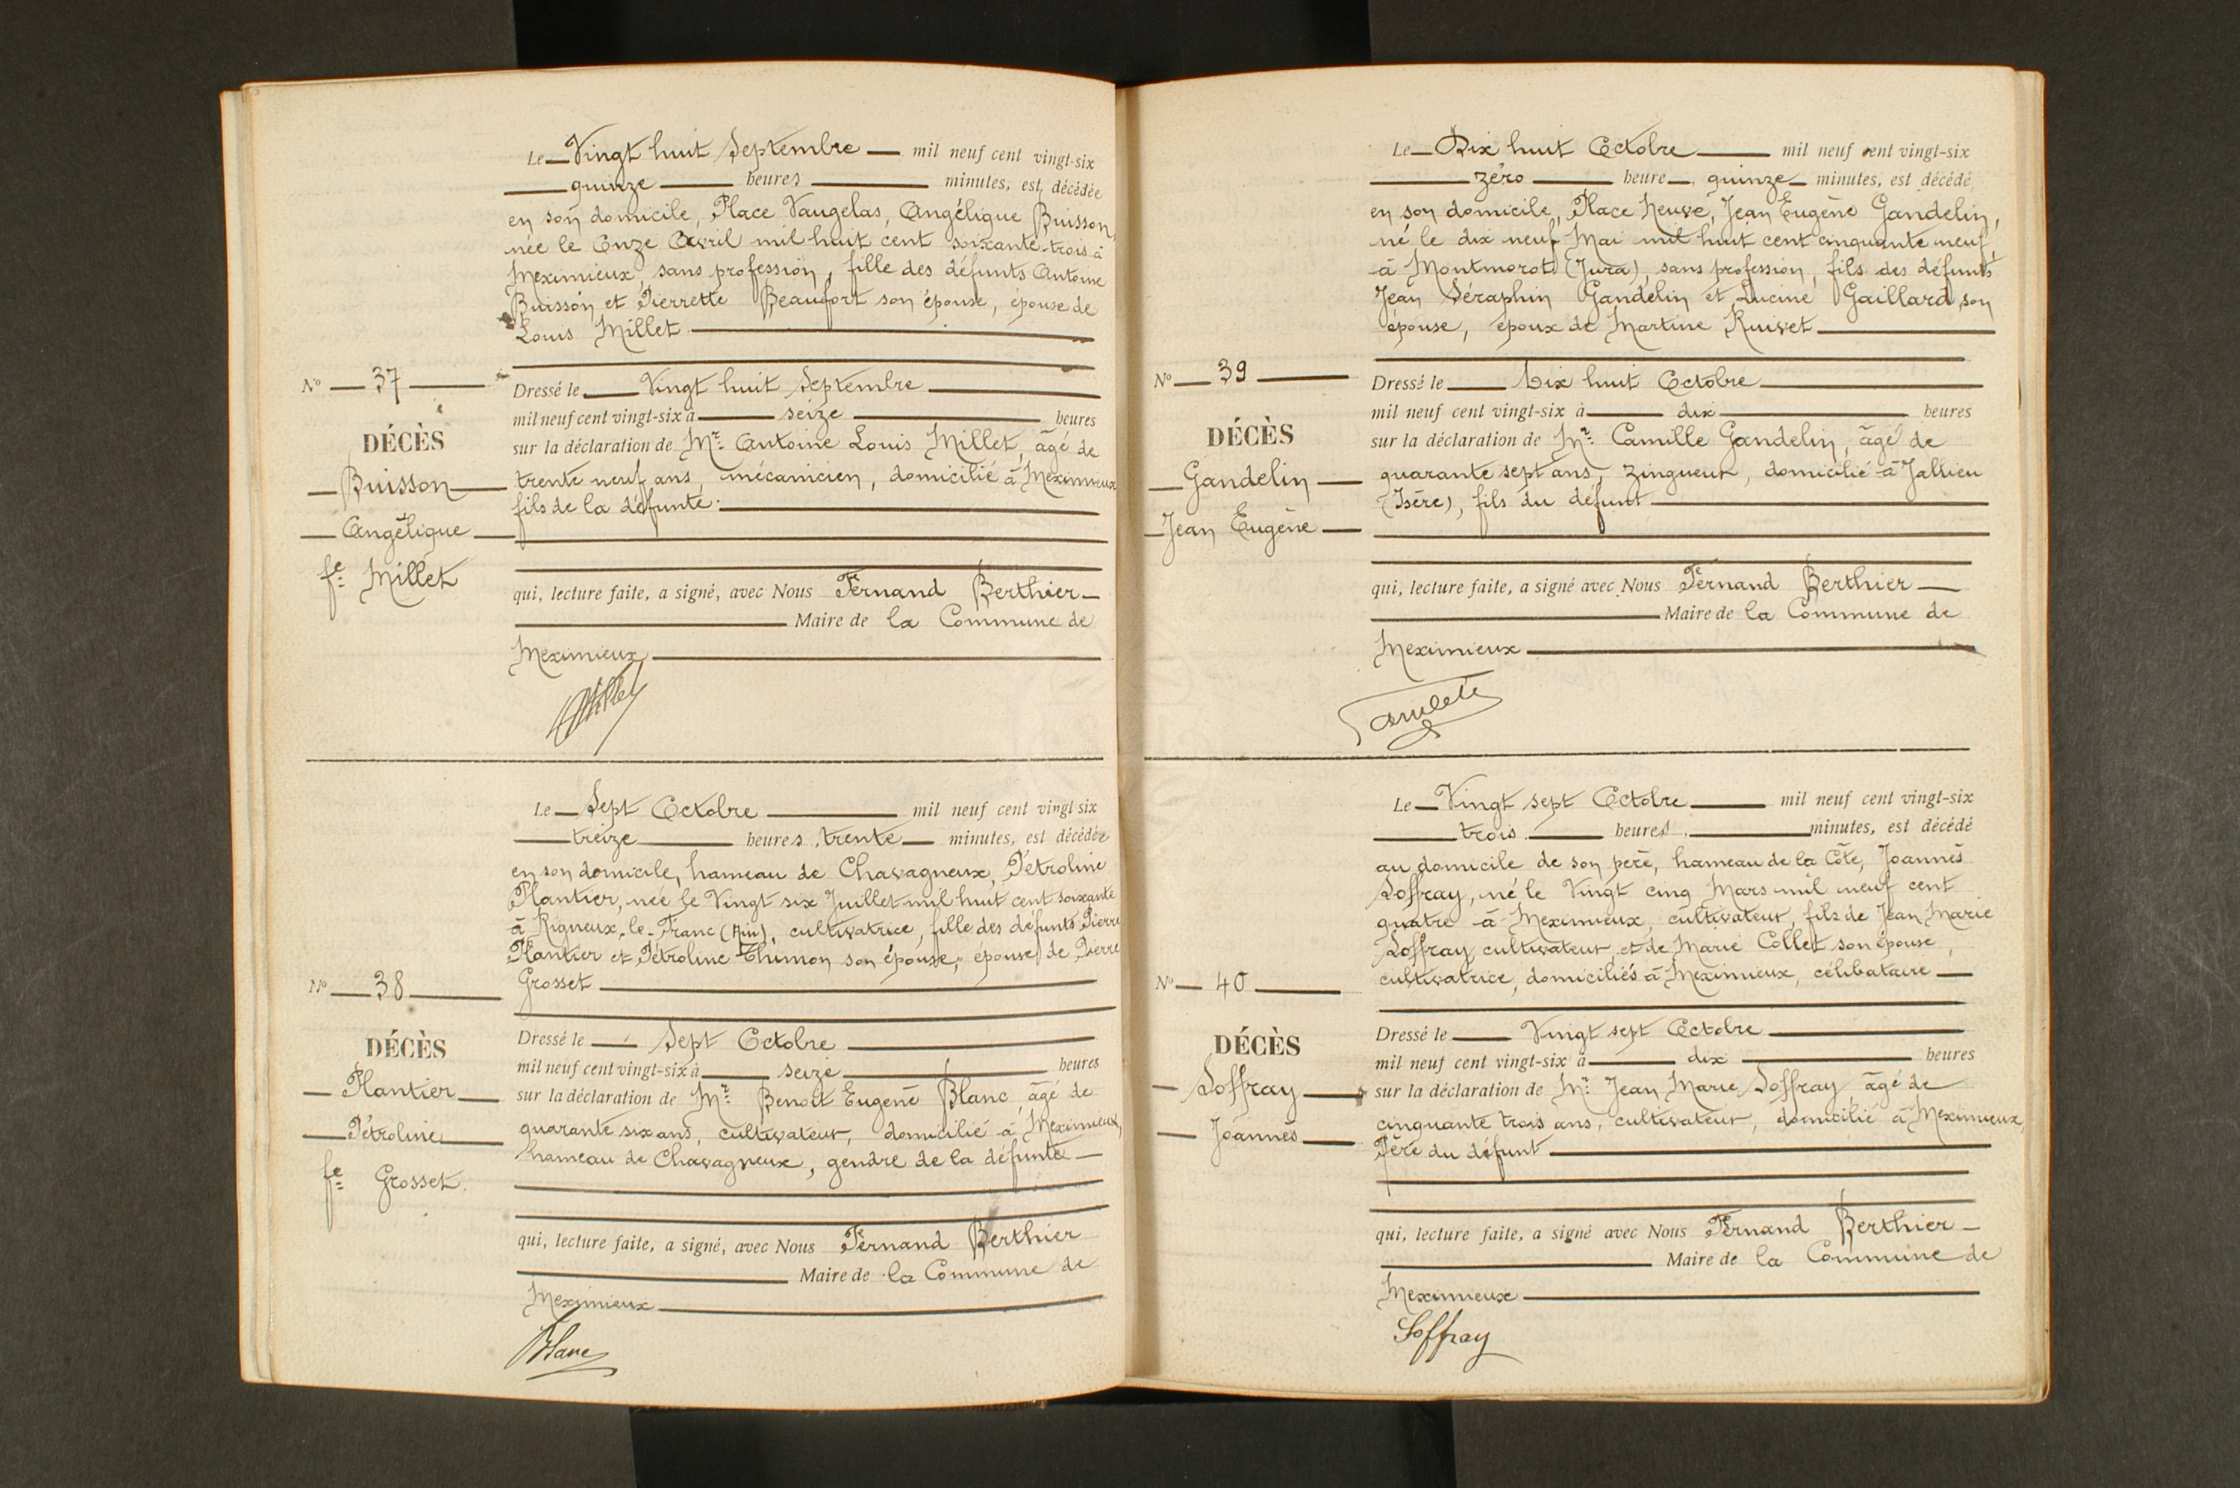 Le Vingt huit Septembre mil neuf cent vingt-six
quinze heures minutes, est décédée
en son domicile, Place Vaugelas, Angélique Buisson,
née le Onze Avril mil huit cent soixante-trois à
Meximieux, sans profession, fille des défunts Antoine
Buisson et Pierrette Beaufort son épouse, épouse de
Louis Millet
N° 37
DÉCÈS
Buisson
Angélique
fe Millet
Dressé le Vingt huit Septembre
mil neuf cent vingt-six à seize heures
sur la déclaration de Mr Antoine Louis Millet, âgé de
trente neuf ans, mécanicien, domicilié à Meximieux
fils de la défunte.
qui, lecture faite, a signé, avec Nous Fernand Berthier
Maire de la Commune de
Meximieux
Le Sept Octobre mil neuf cent vingt six
treize heures trente minutes, est décédée
en son domicile, hameau de Chavagneux, Pétroline
Plantier, née le Vingt six Juillet mil huit cent soixante
à Rigneux-le-Franc (Ain), cultivatrice, fille des défunts Pierre
Plantier et Pétroline Thimon son épouse, épouse de Pierre
Grosset
N° 38
DÉCÈS
Plantier
Pétroline
fe Grosset
Dressé le Sept Octobre
mil neuf cent vingt-six à seize heures
sur la déclaration de Mr Benoit Eugène Blanc, âgé de
quarante six ans, cultivateur, domicilié à Meximieux,
hameau de Chavagneux, gendre de la défunte
qui, lecture faite, a signé, avec Nous Fernand Berthier
Maire de la Commune de
Meximieux
Blanc
Le Dix huit Octobre mil neuf cent vingt-six
zéro heure quinze minutes, est décédé
en son domicile, Place Neuve, Jean Eugène Gandelin,
né le dix neuf Mai mil huit cent cinquante neuf
à Montmorot (Jura), sans profession, fils des défunts
Jean Séraphin Gandelin et Lucine Gaillard son
épouse, époux de Martine Ruivet
N° 39
DÉCÈS
Gandelin
Jean Eugène
Dressé le Dix huit Octobre
mil neuf cent vingt-six à dix heures
sur la déclaration de Mr Camille Gandelin, âgé de
quarante sept ans, zingueur, domicilié à Jallieu
(Isère), fils du défunt
qui, lecture faite, a signé avec Nous Fernand Berthier
Maire de la Commune de
Meximieux
Le Vingt sept Octobre mil neuf cent vingt-six
trois heures minutes, est décédé
au domicile de son père, hameau de la Côte, Joannès
Soffray, né le Vingt cinq Mars mil neuf cent
quatre à Meximieux, cultivateur, fils de Jean Marie
Soffray cultivateur et de Marie Collet son épouse,
cultivatrice, domiciliés à Meximieux, célibataire
N° 40
DÉCÈS
Soffray
Joannès
Dressé le Vingt sept Octobre
mil neuf cent vingt-six à dix heures
sur la déclaration de Mr Jean Marie Soffray, âgé de
cinquante trois ans, cultivateur, domicilié à Meximieux,
Père du défunt
qui, lecture faite, a signé avec Nous Fernand Berthier
Maire de la Commune de
Meximieux
Soffray